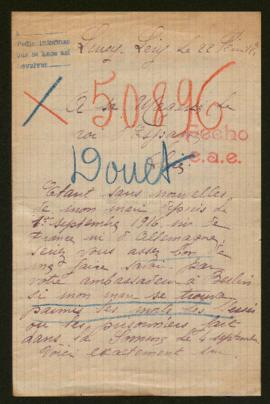 Pedir informes
que se hace así
devolver
50896
A sa Majesté le
roi d'Espagne
Hecho
e.a.e.
Douet
Etant sans nouvelles
de mon mari depuis le
1er septembre 1916 ni de
France ni d'Allemagne
vous assez bon de
me faire savoir par
votre ambassadeur à Berlin
si mon mari se trouve
parmis les morts, les
ou les prisonniers fait
dans la Somme le 4 septembre
Voici exactement son